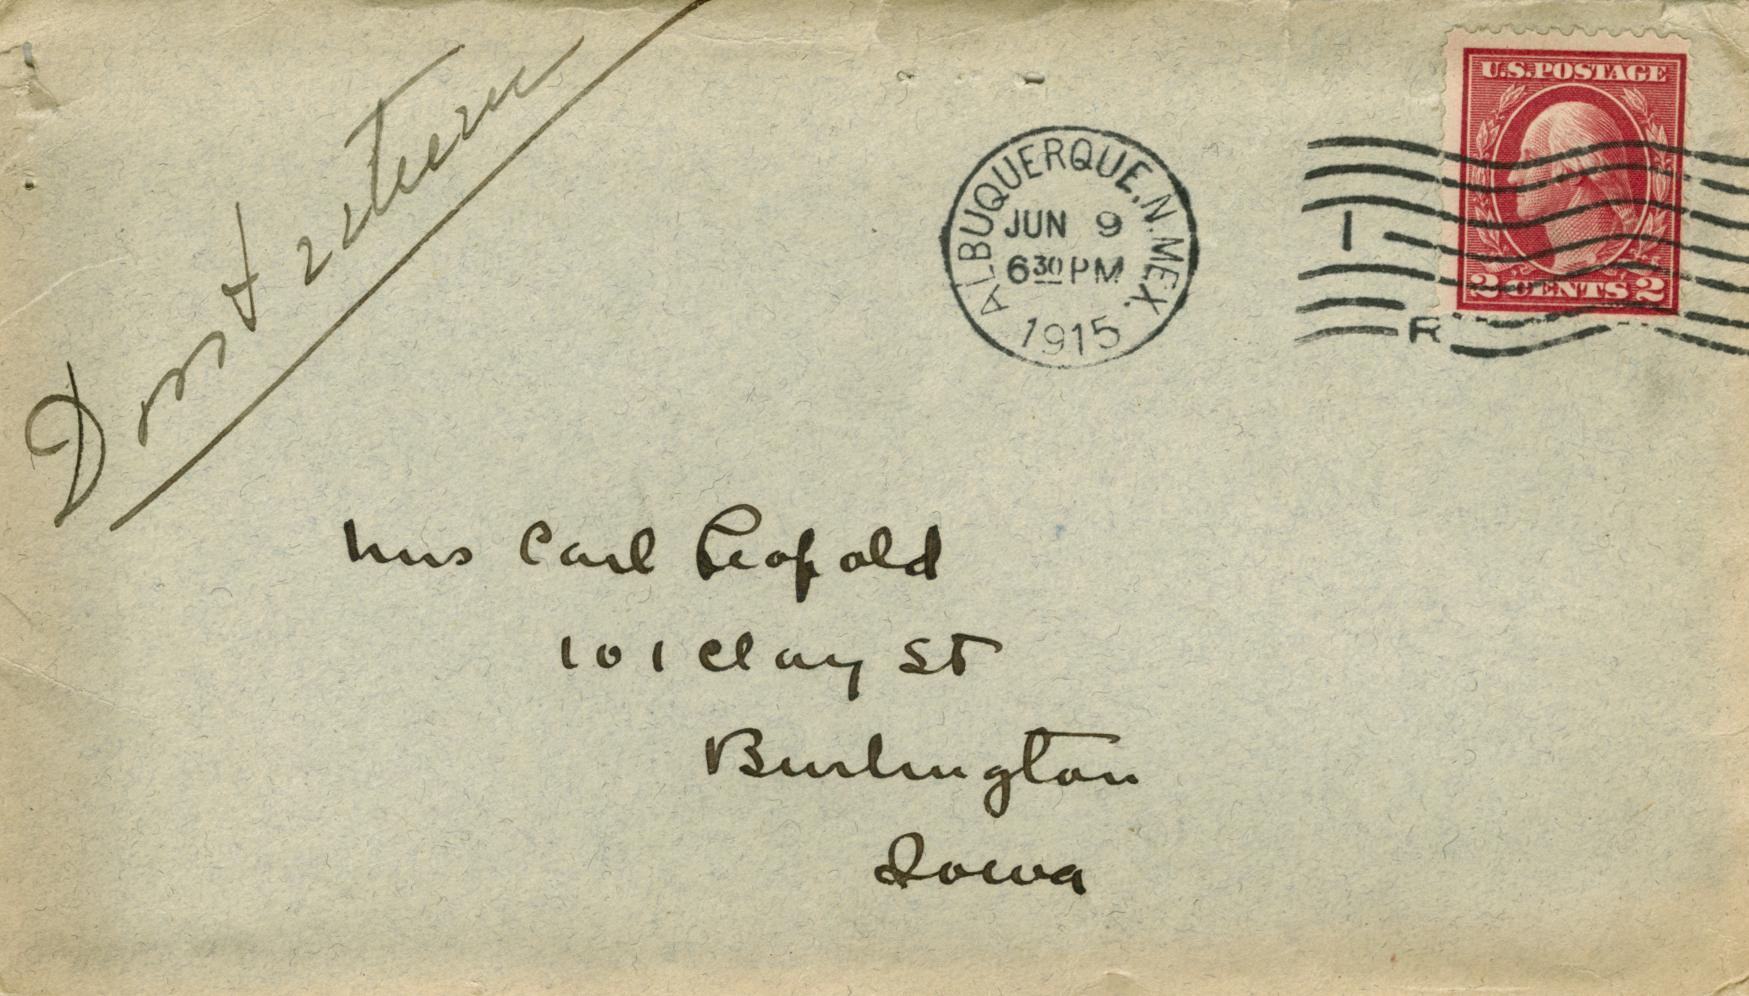 Don't return
U.S. POSTAGE
2 CENTS 2
ALBUQUERQUE, N. MEX.
JUN 9
6 30 PM
1915
1
R
Mrs Carl Leopold
101 Clay St
Burlington
Iowa